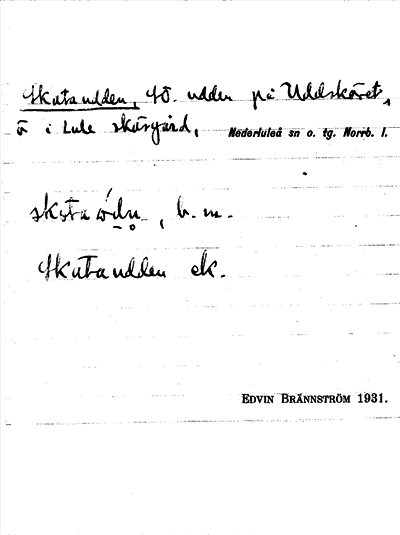 Skataudden, SÖ. udden på Uddskäret,
ö i Lule skärgård, Nederluleå sn o. tg. Norrb. l.
b. m.
Skataudden ek.
EDVIN BRÄNNSTRÖM 1931.